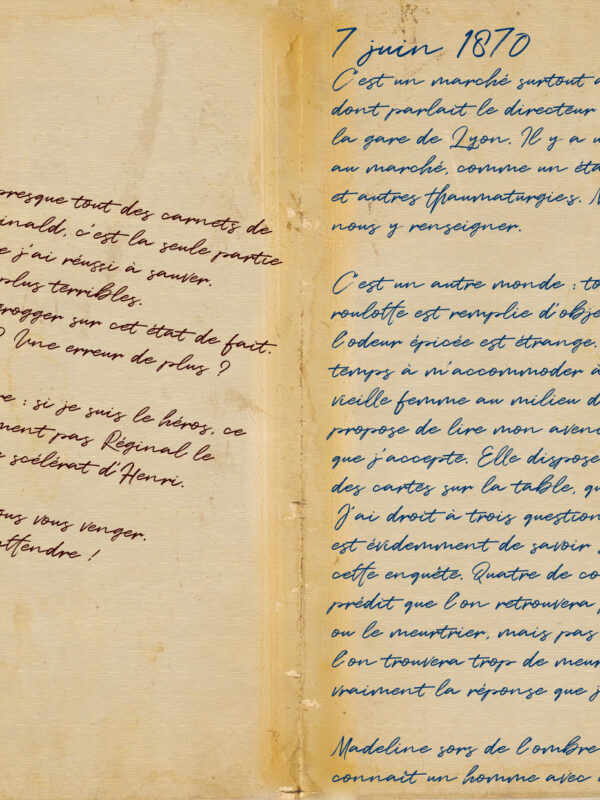 presque tout des carnets de
inald, c'est la seule partie
e j'ai réussi à sauver.
plus terribles.
rogger sur cet état de fait.
? Une erreur de plus ?
re : si je suis le héros, ce
ment pas Réginal le
scélérat d'Henri.
ous vous venger.
attendre !
7 juin 1870
C'est un marché surtout
dont parlait le directeur
la gare de Lyon. Il y a
au marché, comme un
et autres thaumaturgies.
nous y renseigner.
C'est un autre monde :
roulotte est remplie
l'odeur épicée est étrange.
temps à m'accommoder à
vieille femme au milieu
propose de lire mon
que j'accepte. Elle dispose
des cartes sur la table,
J'ai droit à trois
est évidemment de savoir
cette enquête. Quatre de
prédit que l'on retrouvera
ou le meurtrier, mais pas
l'on trouvera trop de
vraiment la réponse que
Madeline sors de l'ombre
connait un homme avec